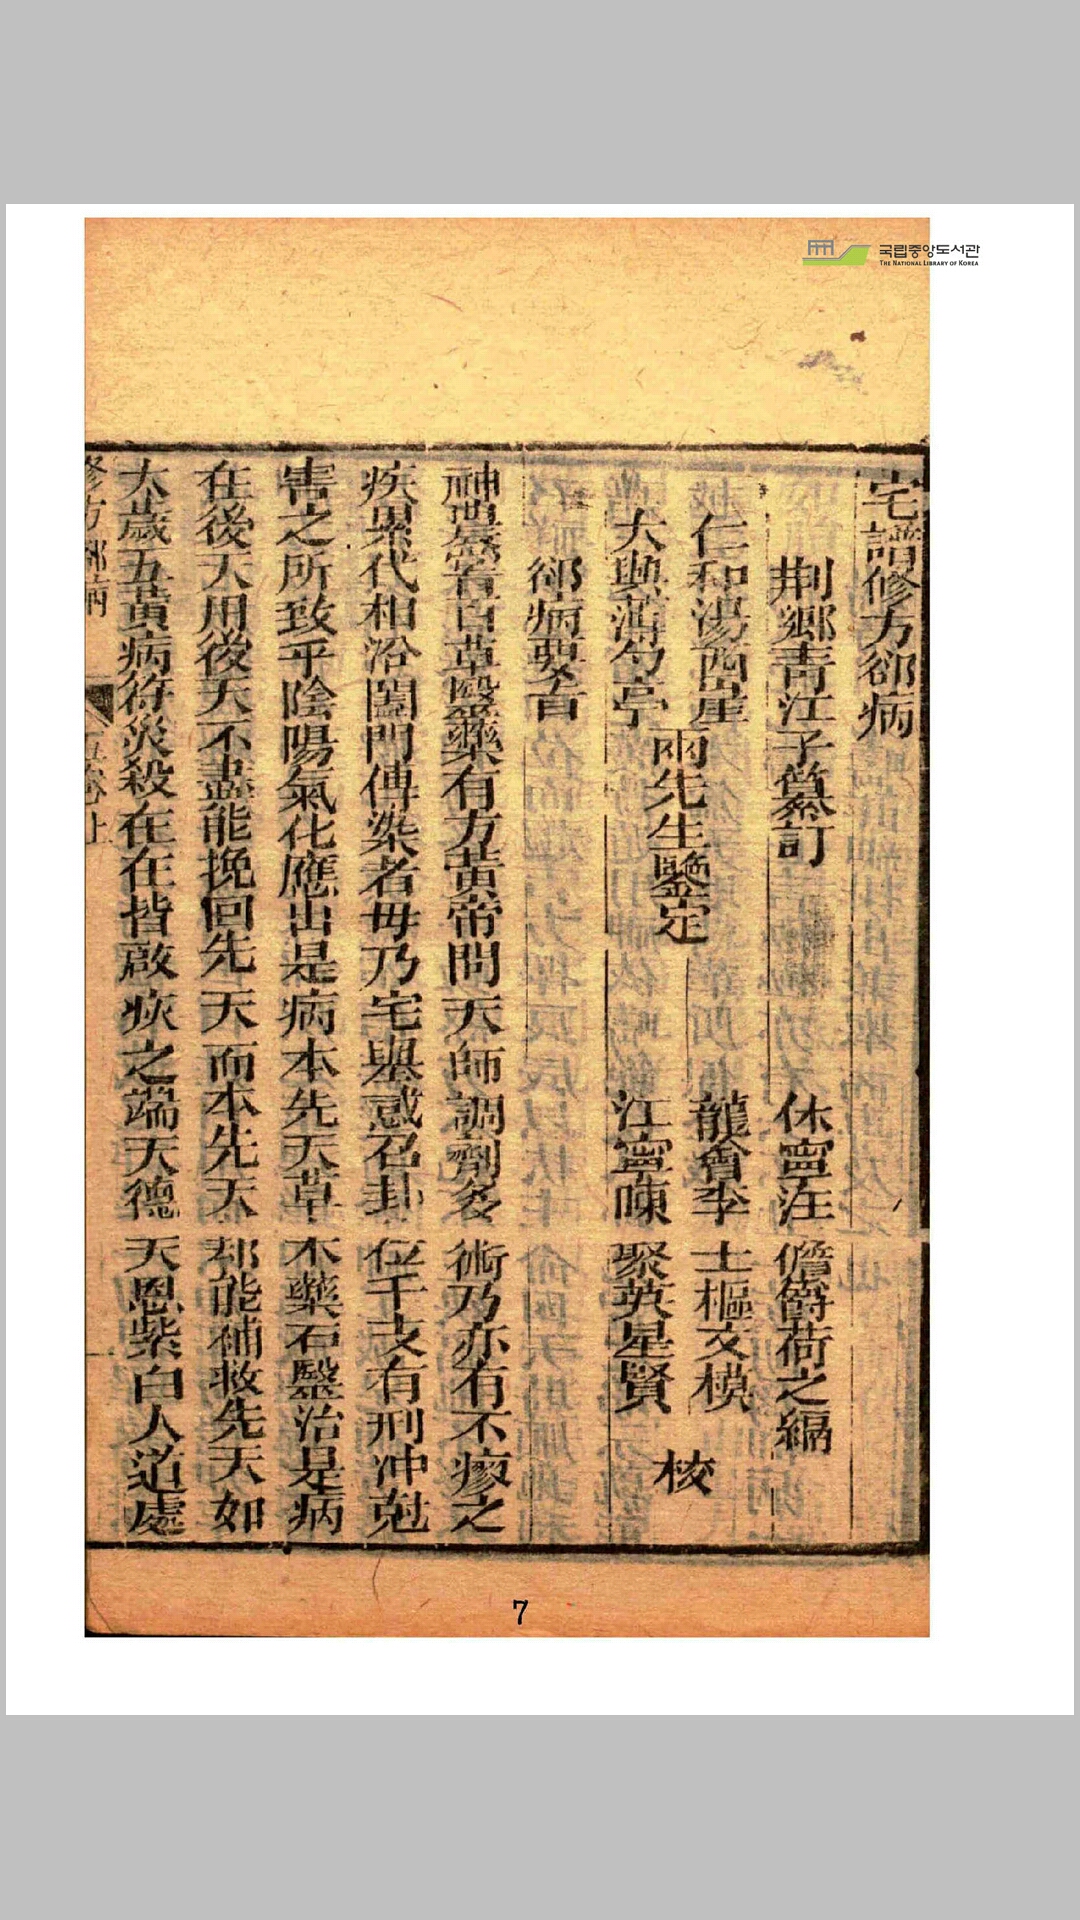 국립중앙도서관
THE NATIONAL LIBRARY OF KOREA
宅譜修方郤病
荆鄉青江子纂訂 休寧汪 儋爵荷之編
仁和湯酉星 龍會李 士樞文模
大興蒲勺亭 江寧陳 聚英星賢
兩先生鑒定 校
郤病要旨
神農著百草醫藥有方黃帝問天師調劑多術乃亦有不瘳之
疾累代相沿闔門傳染者毋乃宅與感召卦位干支有刑冲尅
害之所致乎陰陽氣化應出是病本先天草木藥石醫治是病
在後天用後天不盡能挽回先天而本先天却能補救先天如
太歲五黃病符災殺在在皆啟疾之端天德天恩紫白人道處
修方郤病 卷上
7